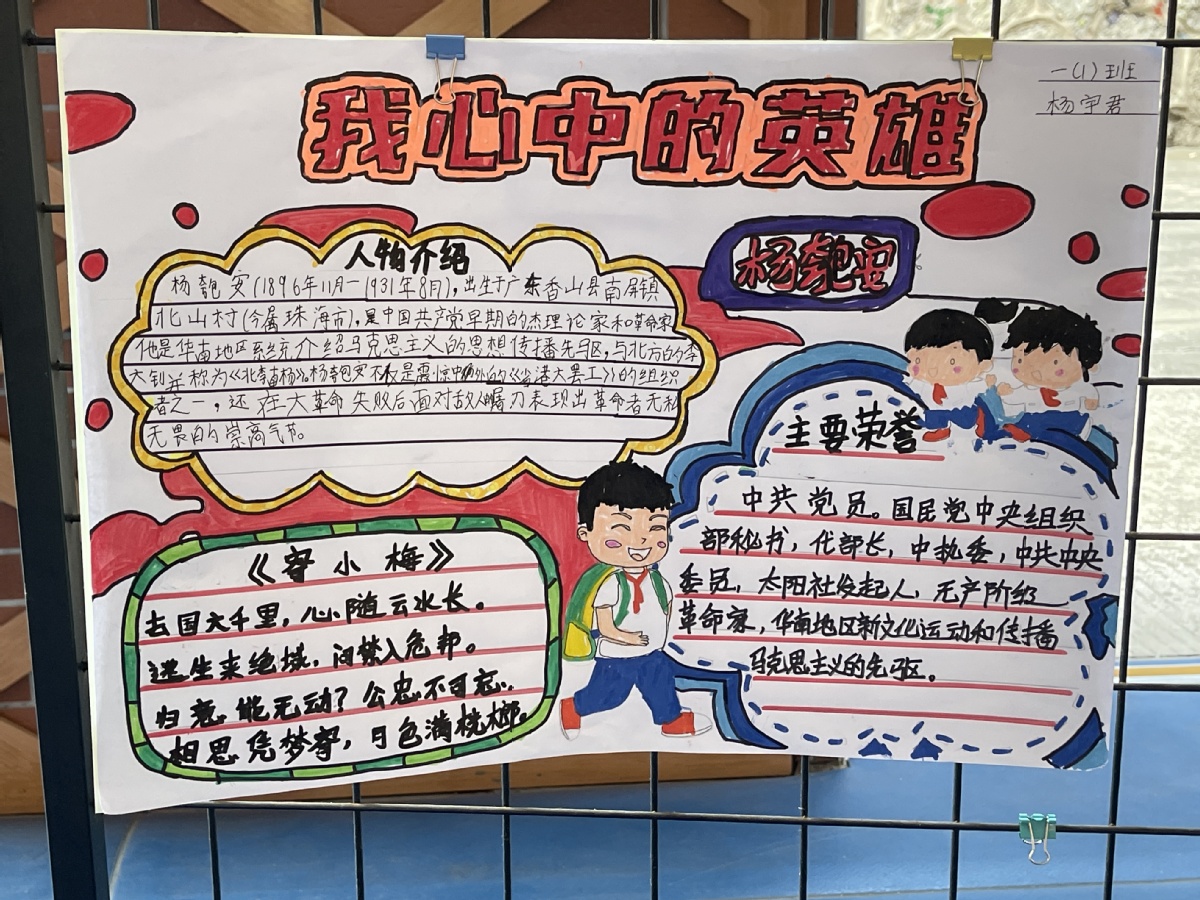 我心中的英雄
一(1)班
杨宇君
人物介绍
杨匏安(1896年11月一1931年8月),出生于广东香山县南屏镇
北山村(今属珠海市),是中国共产党早期的杰理论家和革命家
他是华南地区系统介绍马克思主义的思想传播先驱,与北方的李
大钊并称为《北李南杨》。杨匏安不仅是震惊中外的《省港大罢工》的组织
者之一,还在大革命失败后面对敌人屠刀表现出革命者无私
无畏的崇高气节。
杨匏安
主要荣誉
中共党员。国民党中央组织
部秘书,代部长,中执委,中共中央
委员,太阳社发起人,无产阶级
革命家,华南地区新文化运动和传播
马克思主义的先驱。
《寄小梅》
去国六千里,心随云水长。
逃生来绝域,问禁入危邦。
归意能无动?公忠不可忘。
相思凭梦寄,月色满桄榔。